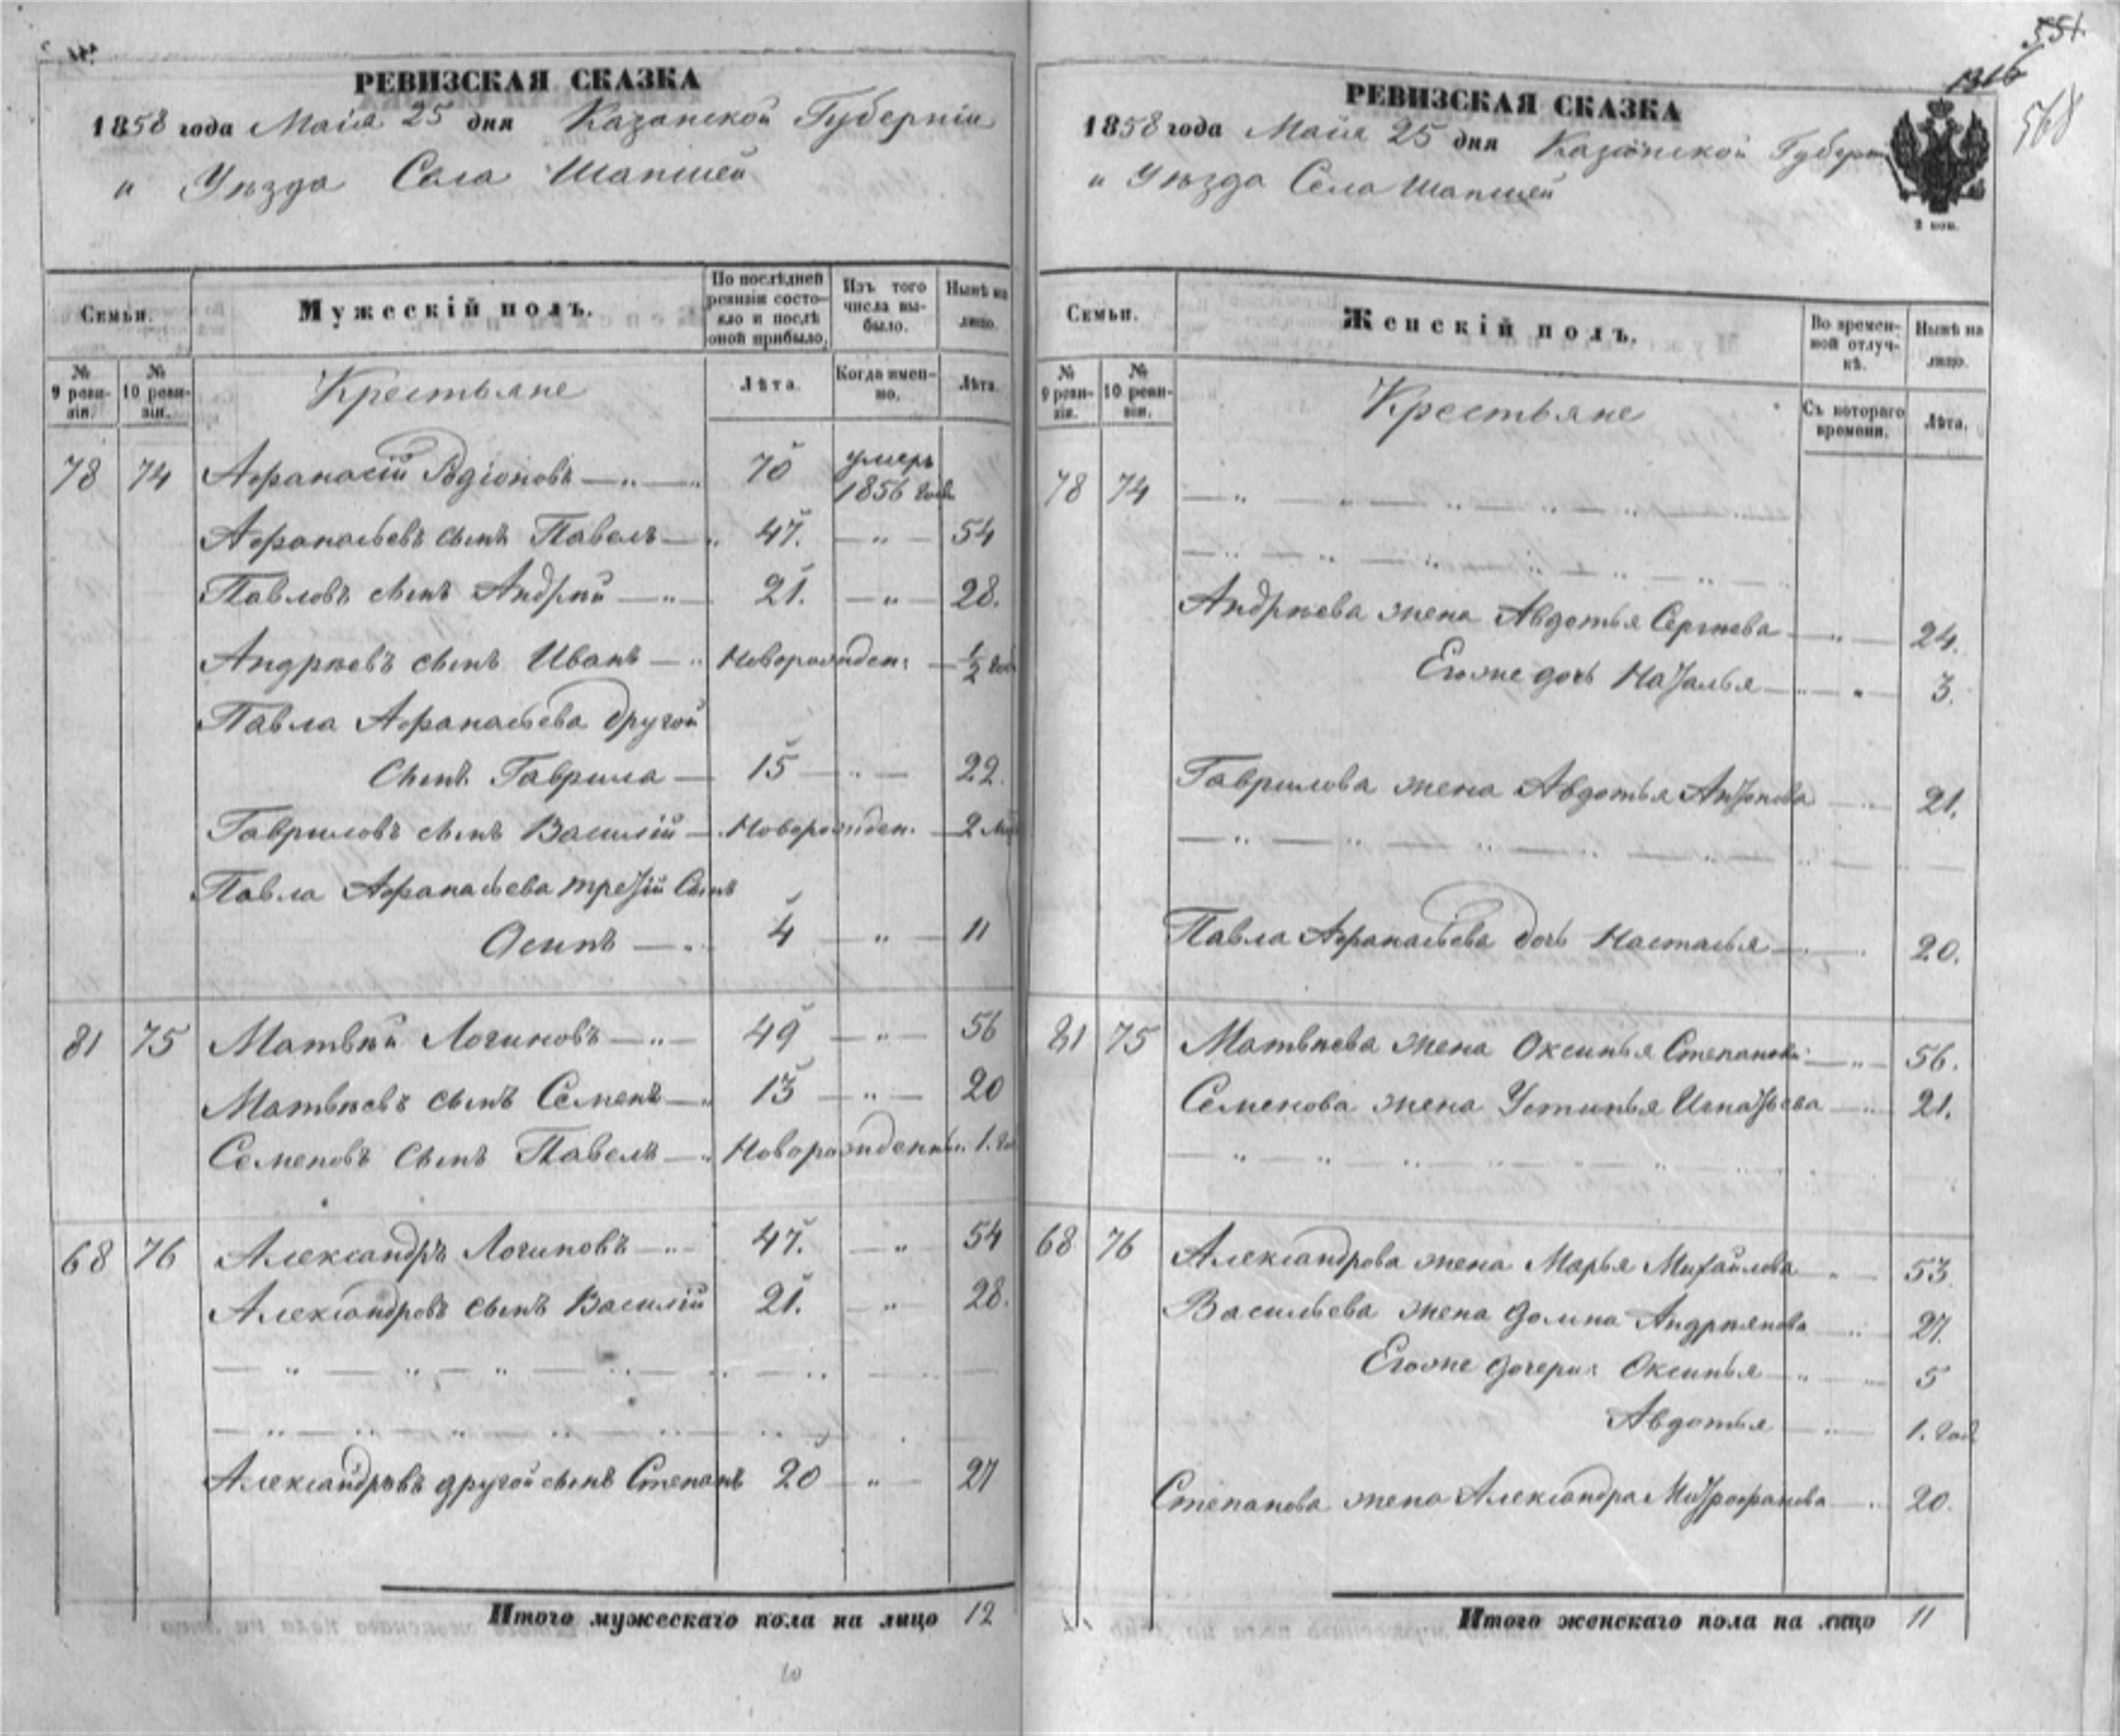 РЕВИЗСКАЯ СКАЗКА
1858 года Маія 25 дня Казанской Губерніи
" Уѣзда Села Шапшей
Семьи.
Мужескій полъ.
По послѣдней ревизіи состояло и послѣ оной прибыло.
Изъ того числа выбыло.
Нынѣ на лицо.
№ 9 ревизіи.
№ 10 ревизіи.
Крестьяне
Лѣта.
Когда именно.
Лѣта.
78 74 Афанасій Родіоновъ — " — 70 умеръ 1856 года
Афанасьевъ сынъ Павелъ — " 47. — " — 54
Павловъ сынъ Андрей — " — 21. — " — 28.
Андреевъ сынъ Иванъ — " Новорожден: — 1/2 года
Павла Афанасьева другой
сынъ Гаврила — 15 — " — 22.
Гавриловъ сынъ Василій — Новорожден. — 2 мѣ
Павла Афанасьева третій сынъ
Осипъ — " 4 — " — 11
81 75 Матвѣй Логиновъ — " — 49 — " — 56
Матвѣевъ сынъ Семенъ — " 13 — " — 20
Семеновъ сынъ Павелъ — " Новорожденны 1. го
68 76 Александръ Логиновъ — " 47. — " 54
Александровъ сынъ Василій 21. — " 28.
Александровъ другой сынъ Степанъ 20 — " — 27
Итого мужескаго пола на лицо 12
551.
1316
568
РЕВИЗСКАЯ СКАЗКА
1858 года Маія 25 дня Казанской Губерн
" Уѣзда Села Шапшей
2 коп.
Семьи.
Женскій полъ.
Во временной отлучкѣ.
Нынѣ на лицо.
№ 9 ревизіи.
№ 10 ревизіи.
Крестьяне
Съ котораго времени.
Лѣта.
78 74
Андреева жена Авдотья Сергѣева — " — 24.
Егоже дочь Наталья — " — " — 3.
Гаврилова жена Авдотья Антонова — " 21.
Павла Афанасьева дочь Настасья — 20.
81 75 Матвѣева жена Оксинья Степанова — " — 56.
Семенова жена Устинья Игнатьева — " 21.
68 76 Александрова жена Марья Михайлова — " — 53
Васильева жена Домна Андреянова — " 27.
Егоже дочери: Оксинья — " — 5
Авдотья — " — 1. год
Степанова жена Александра Митрофанова — " 20.
Итого женскаго пола на лицо 11